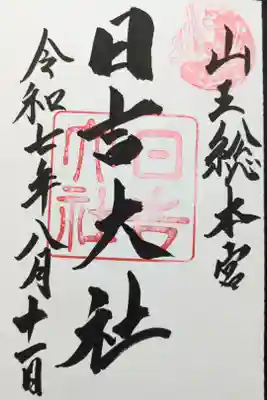 山王総本宮
日吉大社
令和七年八月十一日
日吉大社